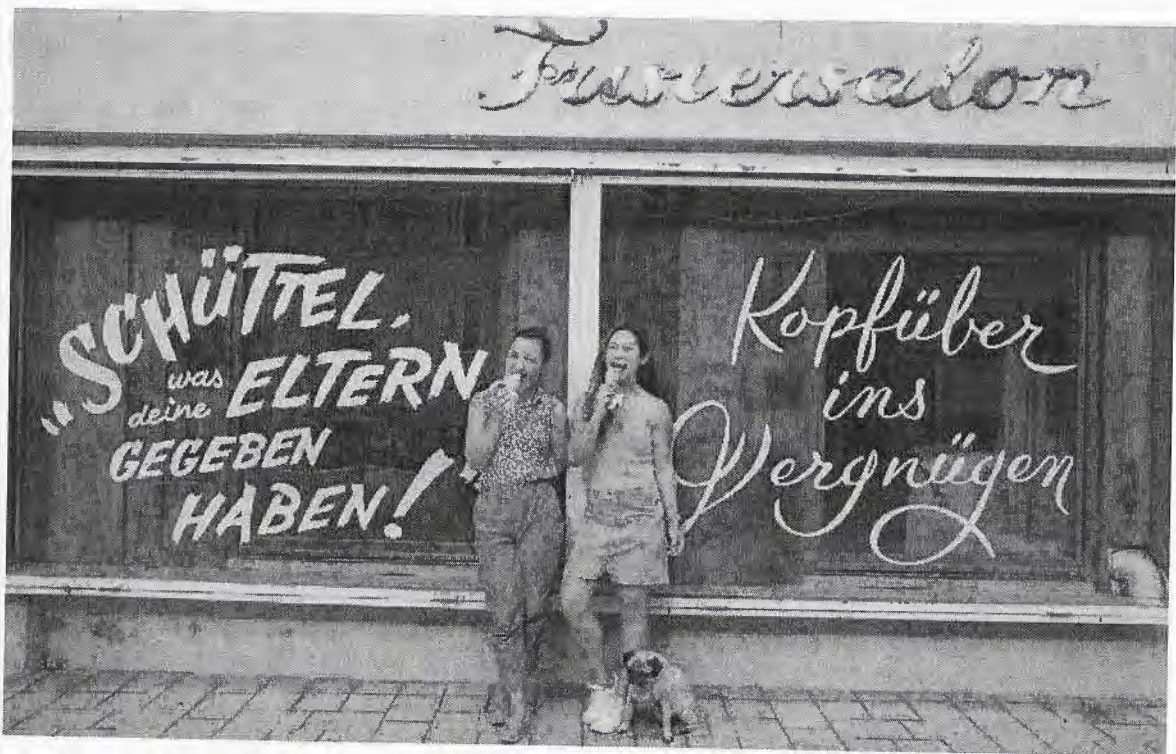 Frisiersalon
„SCHÜTTEL,
was
deine ELTERN
GEGEBEN
HABEN!“
Kopfüber
ins
Vergnügen